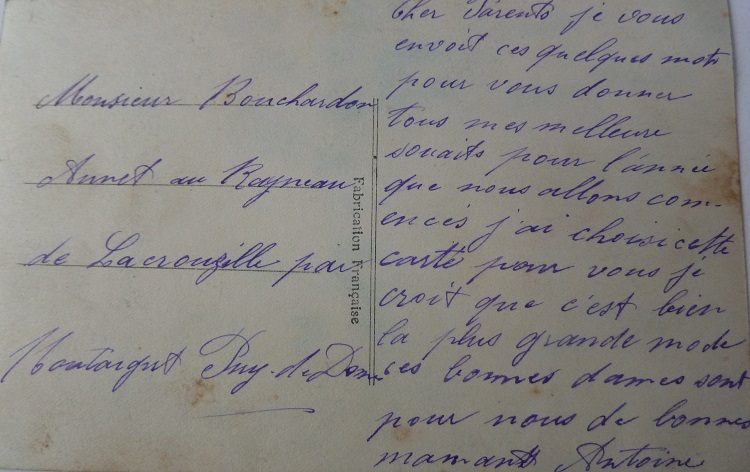 Monsieur Bouchardon
Annet au Rayneau
de Lacrouzille par
Montaigut Puy-de-Dome
Fabrication Française
Cher Parents je vous
envoit ces quelques mots
pour vous donner
tous mes meilleure
souaits pour l'année
que nous allons com-
encés j'ai choisi cette
carte pour vous je
croit que c'est bien
la plus grande mode
ces bonnes dames sont
pour nous de bonnes
mamant Antoine